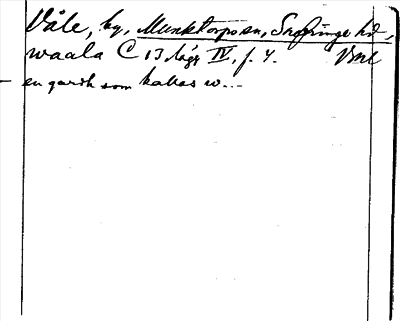 Våle, by, Munktorps sn, Snefringe hd,
waala C 13 lägg IV, f. 4. Vml
en gardh som kallas w...